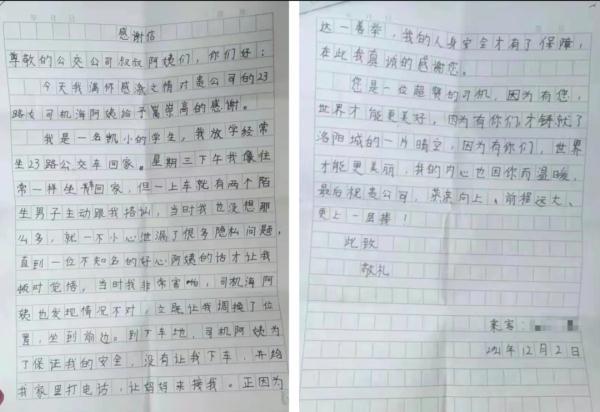 感谢信
尊敬的公交公司叔叔阿姨们，你们好：
今天我满怀感激之情对贵公司的23
路女司机海阿姨给予最崇高的感谢。
我是一名凯小的学生，我放学经常
坐23路公交车回家。星期三下午我像往
常一样坐车回家，但一上车就有两个陌
生男子主动跟我搭讪，当时我也没想那
么多，就一不小心泄漏了很多隐私问题，
直到一位不知名的好心阿姨的话才让我
顿时觉悟，当时我非常害怕，司机海阿
姨也发现情况不对，立既让我调换了位
置，坐到前边。到下车地，司机阿姨为
了保证我的安全，没有让我下车，并给
我家里打电话，让妈妈来接我。正因为
这一善举，我的人身安全才有了保障，
在此我真诚的感谢您。
您是一位超赞的司机，因为有您，
世界才能更美好，因为有你们才铸就了
洛阳城的一片晴空，因为有你们，世界
才能更美丽，我的内心也因你而温暖，
最后祝贵公司，蒸蒸向上、前程远大、
更上一层楼！
此致
敬礼
2021年12月2日